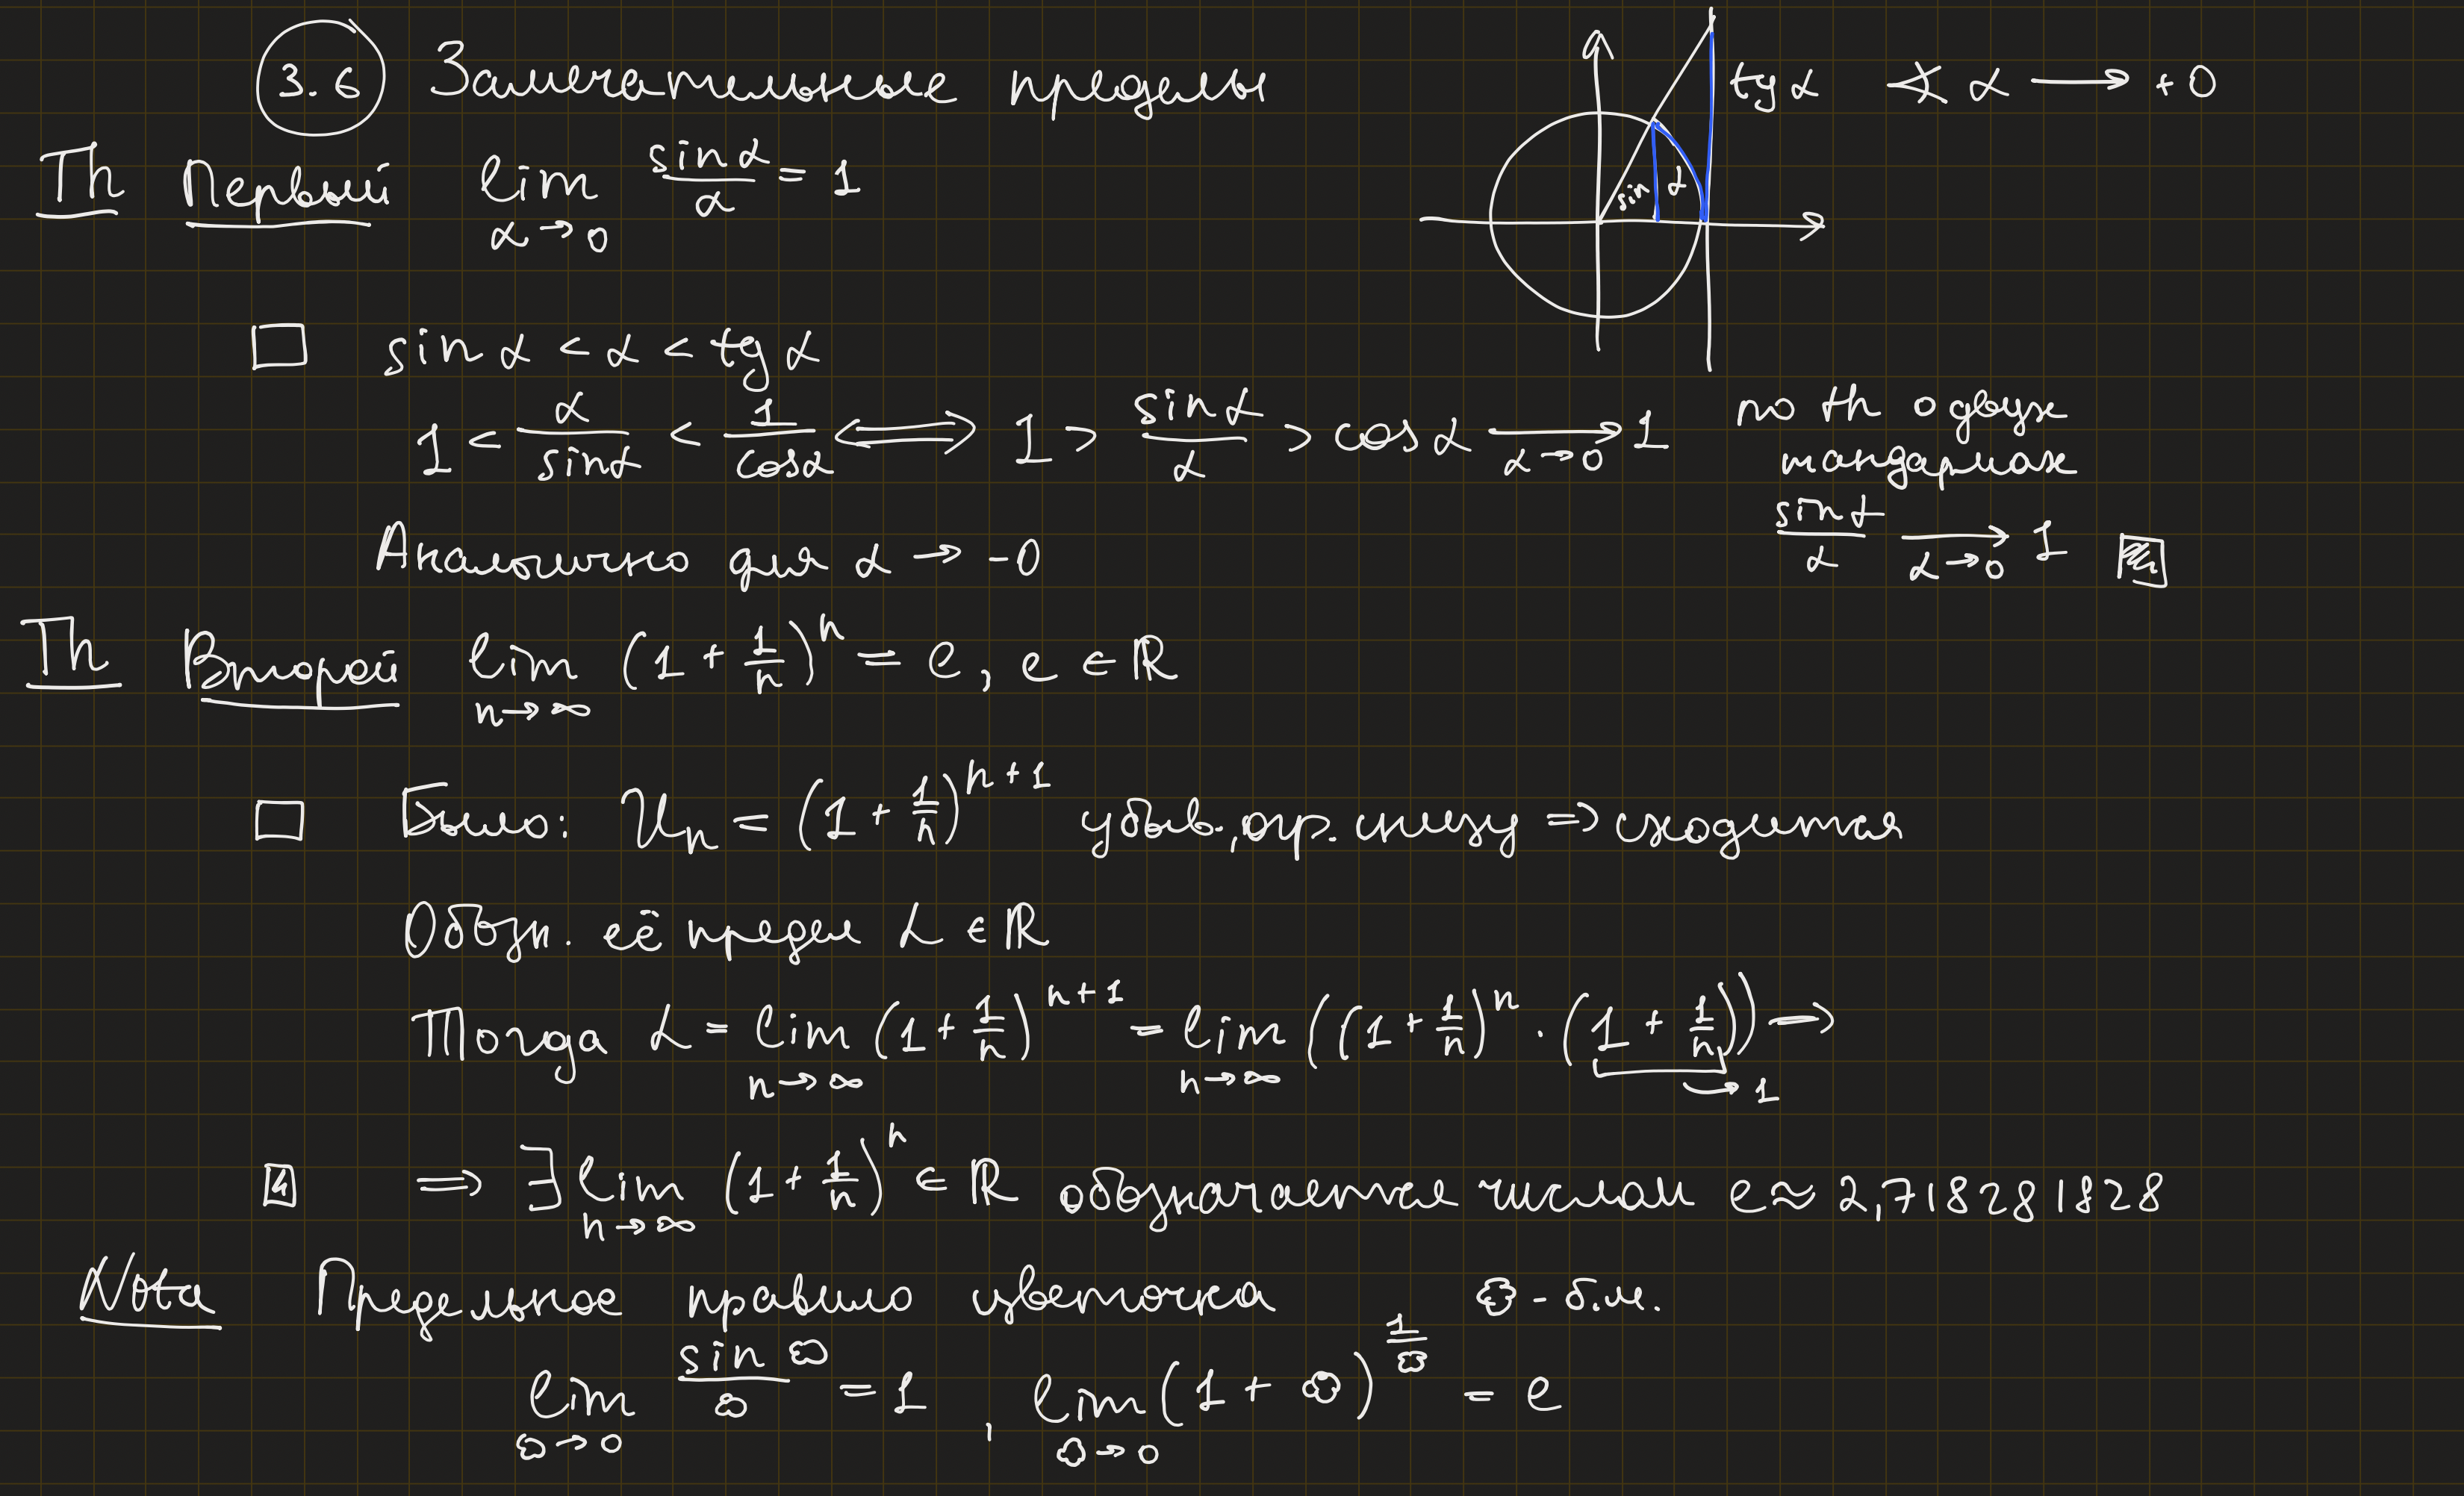 3.6 Замечательные пределы
tg α ∢ α → +0
sin α
Th Первый lim_{α→0} sin α / α = 1
□ sin α < α < tg α
1 < α / sin α < 1 / cos α ⟺ 1 > sin α / α > cos α →_{α→0} 1
по th о двух
мандаринах
sin α / α →_{α→0} 1
Аналогично для α → -0
Th Второй lim_{n→∞} (1 + 1/n)^n = e, e ∈ ℝ
□ Было: U_n = (1 + 1/n)^{n+1} убыв., огр. снизу => сходится
Обозн. её предел L ∈ ℝ
Тогда L = lim_{n→∞} (1 + 1/n)^{n+1} = lim_{n→∞} ((1 + 1/n)^n · (1 + 1/n)) ⟹
→ 1
⟹ ∃ lim_{n→∞} (1 + 1/n)^n ∈ ℝ обозначается числом e ≈ 2,718281828
Nota Предельное правило цветочка ✿ - б.м.
lim_{✿→0} sin ✿ / ✿ = 1, lim_{✿→0} (1 + ✿)^{1/✿} = e